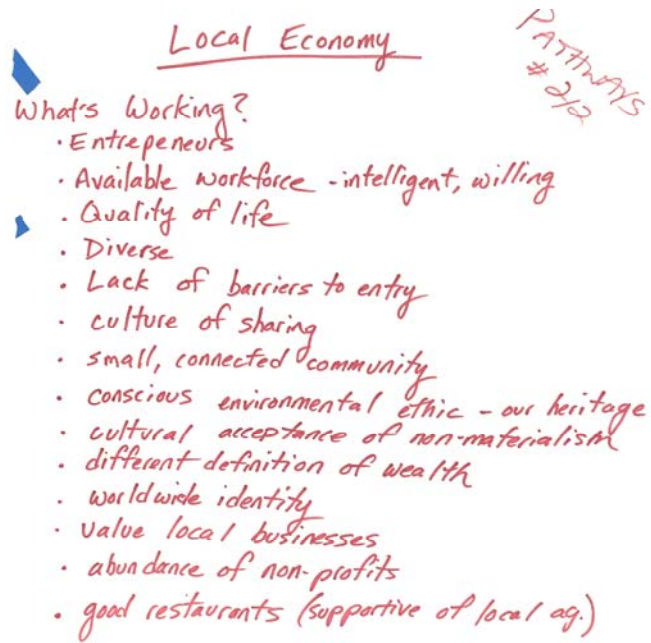 Local Economy
PATHWAYS
# 2/2
What's Working?
· Entrepeneurs
· Available workforce - intelligent, willing
· Quality of life
· Diverse
· Lack of barriers to entry
· culture of sharing
· small, connected community
· conscious environmental ethic - our heritage
· cultural acceptance of non-materialism
· different definition of wealth
· worldwide identity
· value local businesses
· abundance of non-profits
· good restaurants (supportive of local ag.)